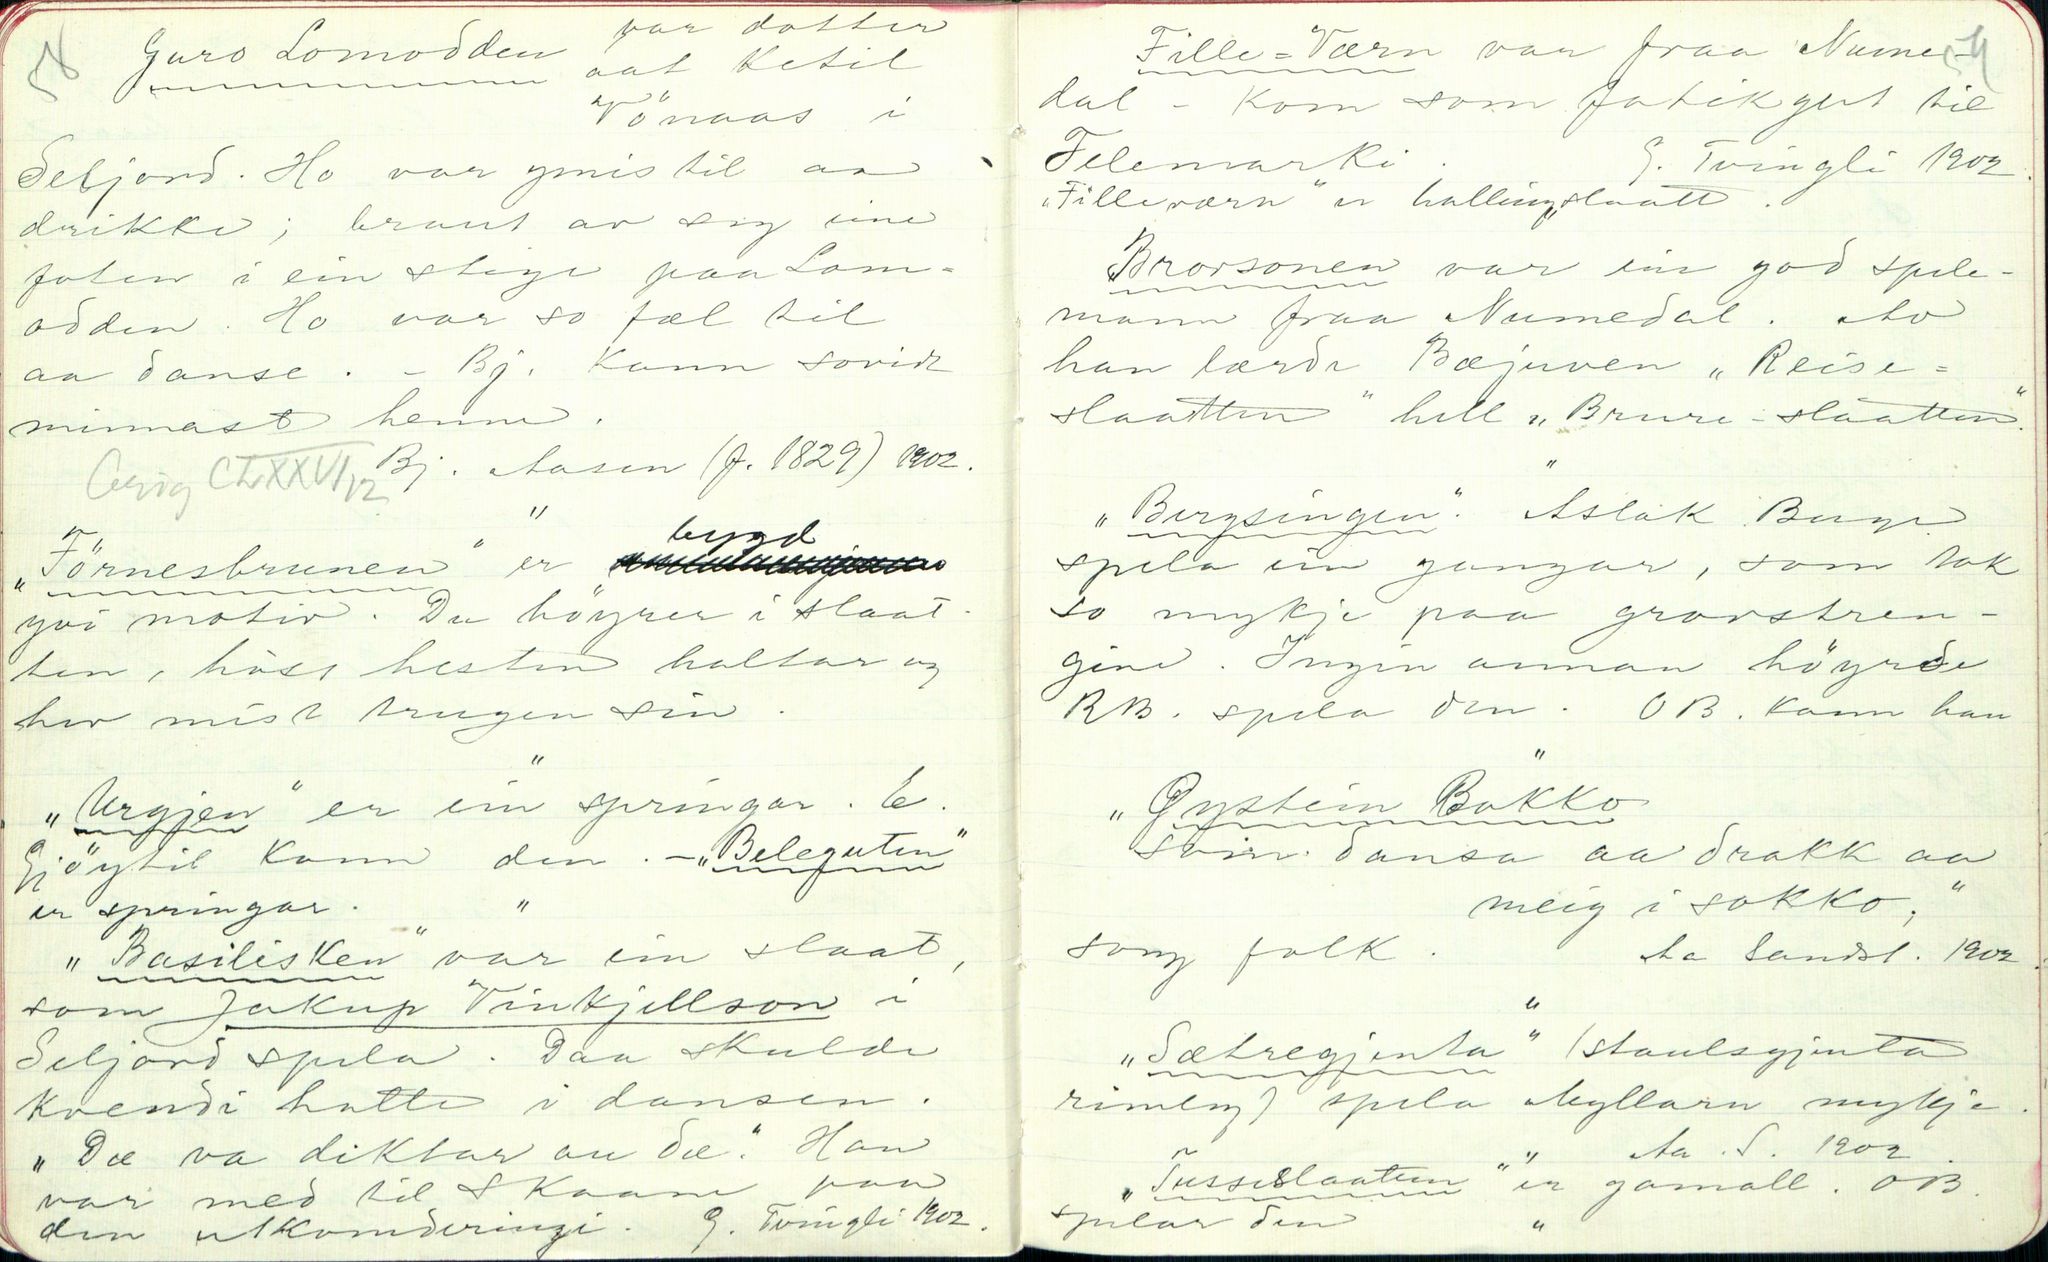 58
Guro Lomodden var dotter
aat Ketil
Vönaas i
Seljord. Ho var ymis til aa
drikke; braut av seg eine
foten i ein stige paa Lom-
odden. Ho var so fæl til
aa danse. - Bj. kann sovidt
minnast henne.
Bj. Aasen (f. 1829) 1902.
Orig CLXXVI, 12
"
"Förnesbrunen" er bygd
yvi motiv. Du höyrer i slaat-
ten, höss hesten haltar og
hev mist trugen sin.
"
"Urgjen" er ein springar. E.
Gjöytil kann den. - "Beleguten"
er springar.
"
"Basilisken" var ein slaat,
som Jakup Vinkjellson i
Seljord spela. Daa skulde
kvendi hatte i dansen.
"Dæ va diktar au dæ." Han
var med til Skaane paa
den utkomderingi. G. Tvingli 1902.
Fille-Værn var fraa Nume-
dal - kom som fatikgut til
Telemarki. G. Tvingli 1902.
"Filleværn" er hallingslaatt.
Brorsonen var ein god spele-
mann fraa Numedal. Av
han lærde Bæjuven "Reise-
slaatten" hell "Brure-slaatten".
"
"Bergsingen". Aslak Berge
spela ein gangar, som tok
so mykje paa grovstren-
gine. Ingin annan höyrde
RB. spela den. OB. kann han
"
"Øystein Bökko
som dansa aa drakk aa
meig i sokko,"
song folk. Aa Sandsl. 1902.
"
"Sætregjenta" (staulsgjenta
rimleg) spela Myllarn mykje.
" Aa. S. 1902
"Tusseslaatten" er gamall. OB.
spelar den
"